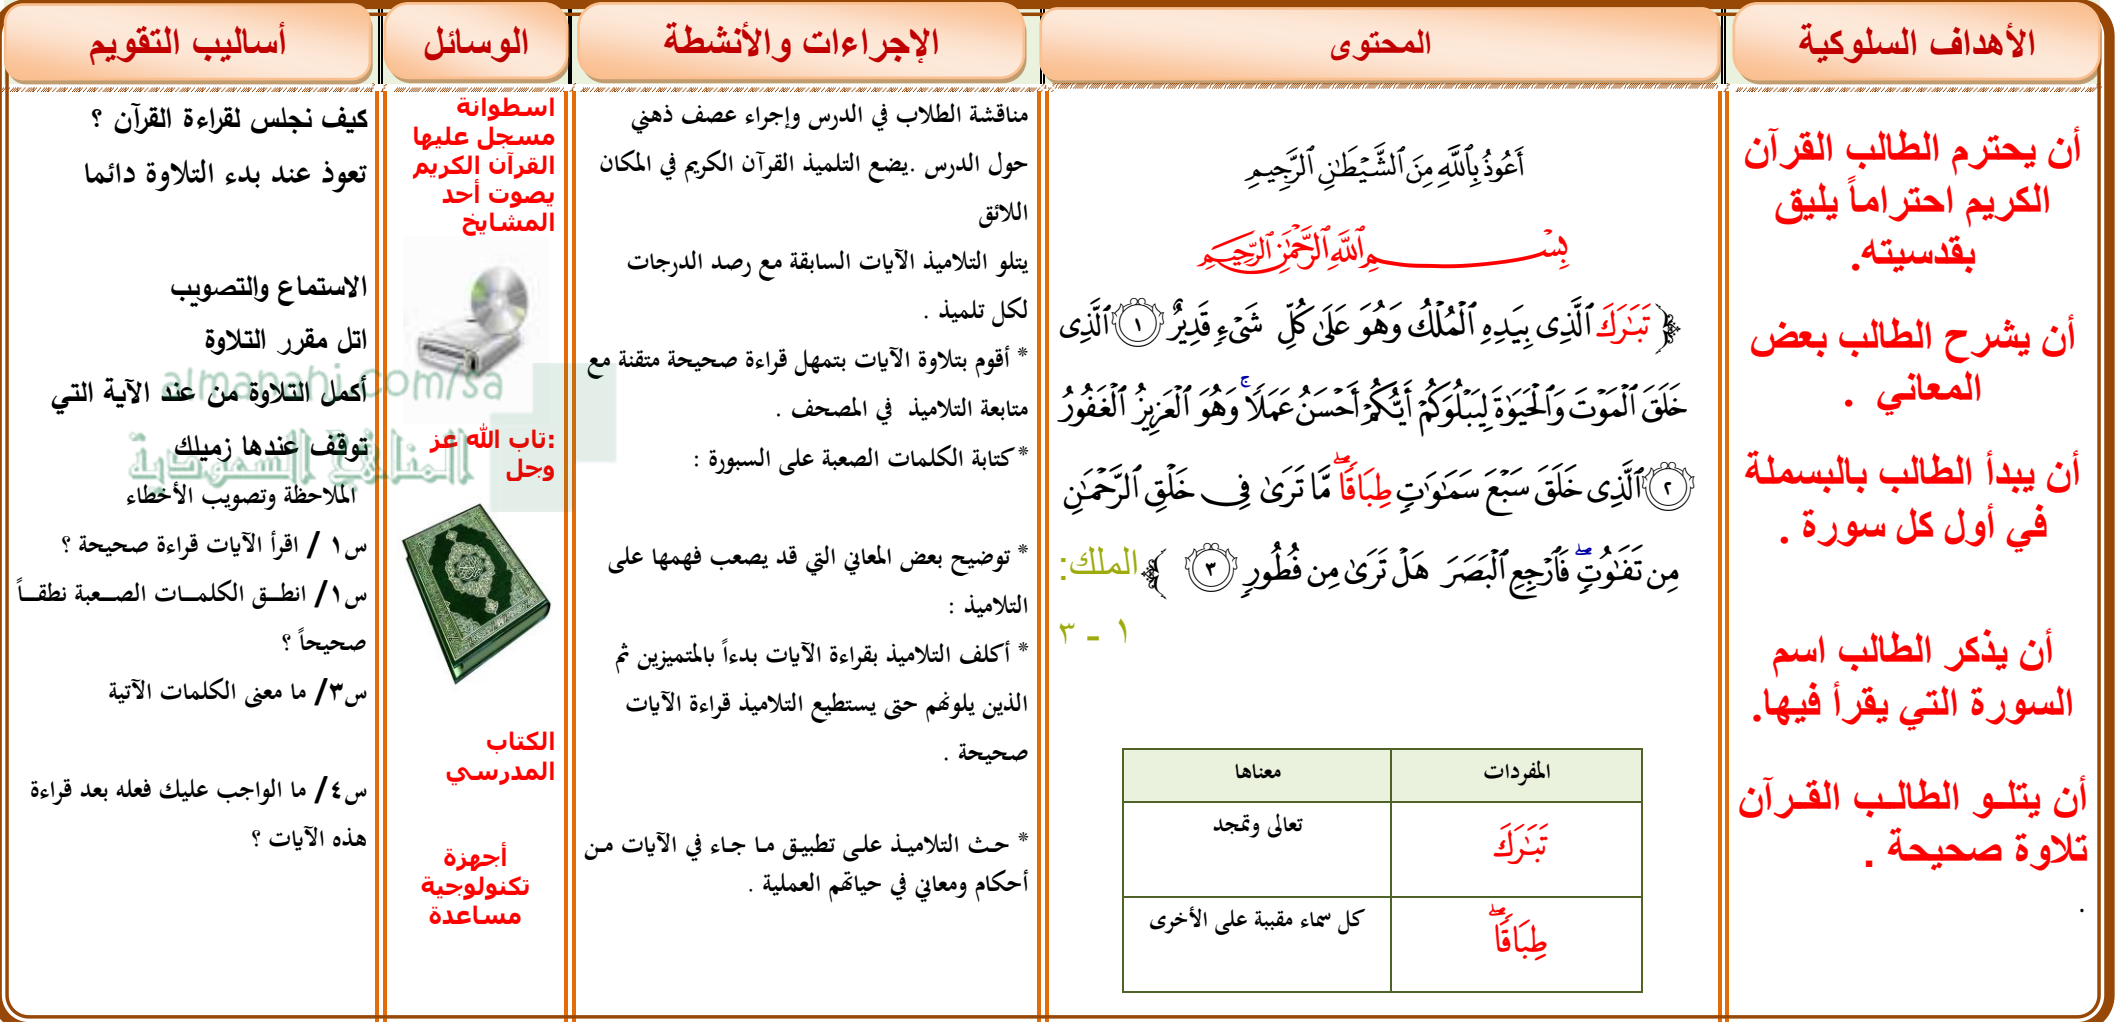 الأهداف السلوكية
المحتوى
الإجراءات والأنشطة
الوسائل
أساليب التقويم
أن يحترم الطالب القرآن
الكريم احتراماً يليق
بقدسيته.
أن يشرح الطالب بعض
المعاني .
أن يبدأ الطالب بالبسملة
في أول كل سورة .
أن يذكر الطالب اسم
السورة التي يقرأ فيها.
أن يتلو الطالب القرآن
تلاوة صحيحة .
.
أَعُوذُ بِٱللَّهِ مِنَ ٱلشَّيْطَٰنِ ٱلرَّجِيمِ
بِسْمِ ٱللَّهِ ٱلرَّحْمَٰنِ ٱلرَّحِيمِ
﴿ تَبَٰرَكَ ٱلَّذِى بِيَدِهِ ٱلْمُلْكُ وَهُوَ عَلَىٰ كُلِّ شَىْءٍ قَدِيرٌ ١ ٱلَّذِى
خَلَقَ ٱلْمَوْتَ وَٱلْحَيَوٰةَ لِيَبْلُوَكُمْ أَيُّكُمْ أَحْسَنُ عَمَلًا ۚ وَهُوَ ٱلْعَزِيزُ ٱلْغَفُورُ
٢ ٱلَّذِى خَلَقَ سَبْعَ سَمَٰوَٰتٍ طِبَاقًا ۖ مَّا تَرَىٰ فِى خَلْقِ ٱلرَّحْمَٰنِ
مِن تَفَٰوُتٍ ۖ فَٱرْجِعِ ٱلْبَصَرَ هَلْ تَرَىٰ مِن فُطُورٍ ٣ ﴾ الملك:
١ - ٣
المفردات
معناها
تَبَٰرَكَ
تعالى وتمجد
طِبَاقًا ۖ
كل سماء مقببة على الأخرى
مناقشة الطلاب في الدرس وإجراء عصف ذهني
حول الدرس .يضع التلميذ القرآن الكريم في المكان
اللائق
يتلو التلاميذ الآيات السابقة مع رصد الدرجات
لكل تلميذ .
* أقوم بتلاوة الآيات بتمهل قراءة صحيحة متقنة مع
متابعة التلاميذ في المصحف .
* كتابة الكلمات الصعبة على السبورة :
* توضيح بعض المعاني التي قد يصعب فهمها على
التلاميذ :
* أكلف التلاميذ بقراءة الآيات بدءاً بالمتميزين ثم
الذين يلونهم حتى يستطيع التلاميذ قراءة الآيات
صحيحة .
* حث التلاميذ على تطبيق ما جاء في الآيات من
أحكام ومعاني في حياتهم العملية .
اسطوانة
مسجل عليها
القرآن الكريم
بصوت أحد
المشايخ
:تاب الله عز
وجل
الكتاب
المدرسي
أجهزة
تكنولوجية
مساعدة
كيف نجلس لقراءة القرآن ؟
تعوذ عند بدء التلاوة دائما
الاستماع والتصويب
اتل مقرر التلاوة
أكمل التلاوة من عند الآية التي
توقف عندها زميلك
الملاحظة وتصويب الأخطاء
س١ / اقرأ الآيات قراءة صحيحة ؟
س١/ انطق الكلمات الصعبة نطقاً
صحيحاً ؟
س٣/ ما معنى الكلمات الآتية
س٤/ ما الواجب عليك فعله بعد قراءة
هذه الآيات ؟
almanahj.com/sa
المناهج السعودية